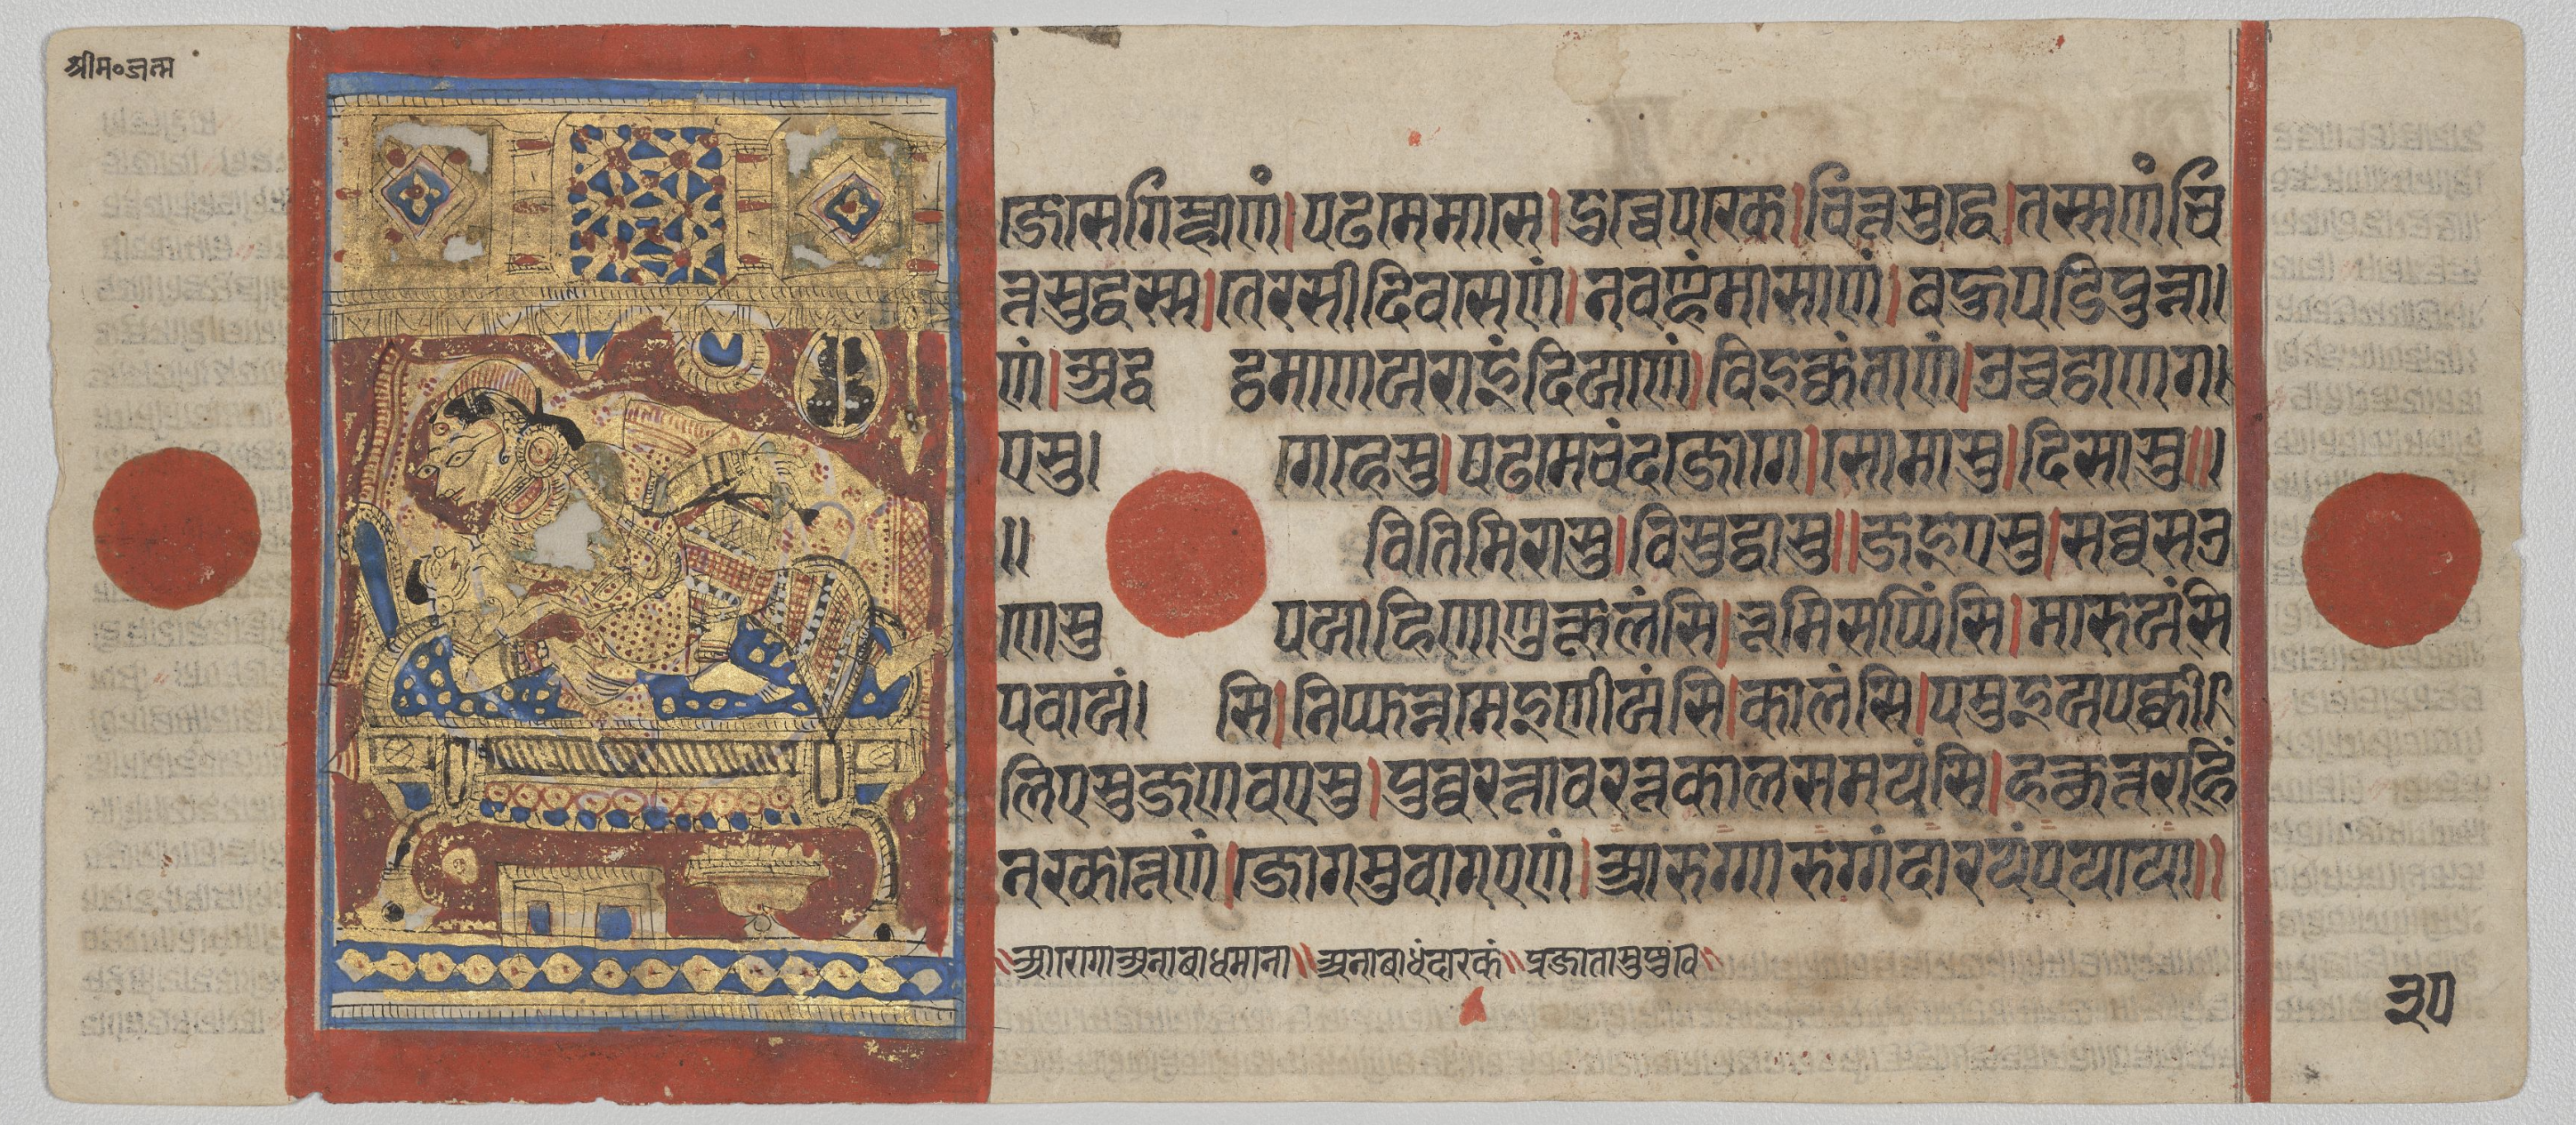 श्रीम॰जन्म
जे से गिम्हाणं।पढमे मासे।दोच्चे पक्खे।चित्तसुद्धे।तस्स णं चि
त्तसुद्धस्स।तेरसीदिवसेणं।नवण्हं मासाणं।बहुपडिपुन्ना
णं।अद्धट्ठमाण य राइंदियाणं।विइक्कंताणं।उच्चट्ठाणग
एसु गहेसु।पढमे चंदजोगे।सोमासु।दिसासु॥
॥वितिमिरासु।विसुद्धासु॥जइएसु।सव्वसउ
णेसु पयाहिणाणुकूलंसि।भूमिसप्पिंसि।मारुयंसि
पवायंसि।निप्फन्नमेइणीयंसि।कालंसि।पमुइयपक्की
लिएसु जणवएसु।पुव्वरत्तावरत्तकालसमयंसि।हत्थुत्तराहिं
नक्खत्तेणं।जोगमुवागएणं।आरुग्गारुग्गं दारयं पयाया॥
॥आरोगा अनाबाधमाना॥अनाबाधं दारकं॥प्रजाता सुषुवे॥
३०